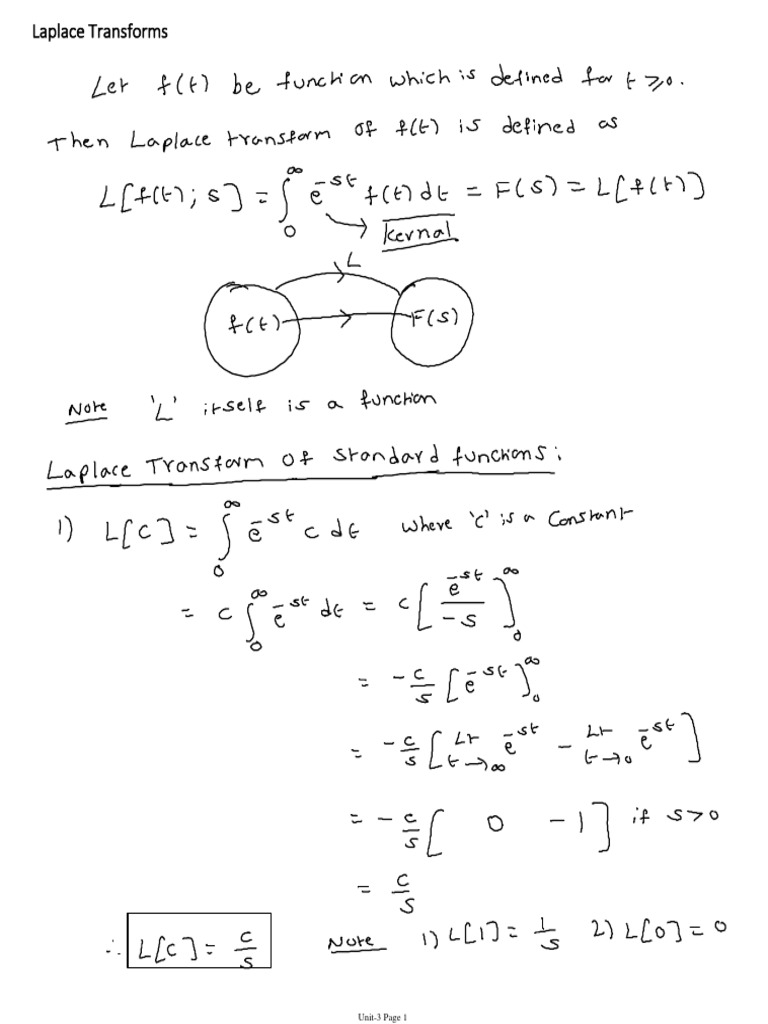 Laplace Transforms
Let f(t) be function which is defined for t ≥ 0.
Then Laplace transform of f(t) is defined as
L[f(t); s] = ∫₀^∞ e^{-st} f(t) dt = F(s) = L[f(t)]
kernal
L
f(t) F(s)
Note 'L' itself is a function
Laplace Transform of standard functions:
1) L[c] = ∫₀^∞ e^{-st} c dt where 'c' is a constant
= c ∫₀^∞ e^{-st} dt = c [e^{-st}/-s]₀^∞
= -c/s [e^{-st}]₀^∞
= -c/s [Lt t→∞ e^{-st} - Lt t→0 e^{-st}]
= -c/s [0 - 1] if s>0
= c/s
∴ L[c] = c/s Note 1) L[1] = 1/s 2) L[0] = 0
Unit-3 Page 1